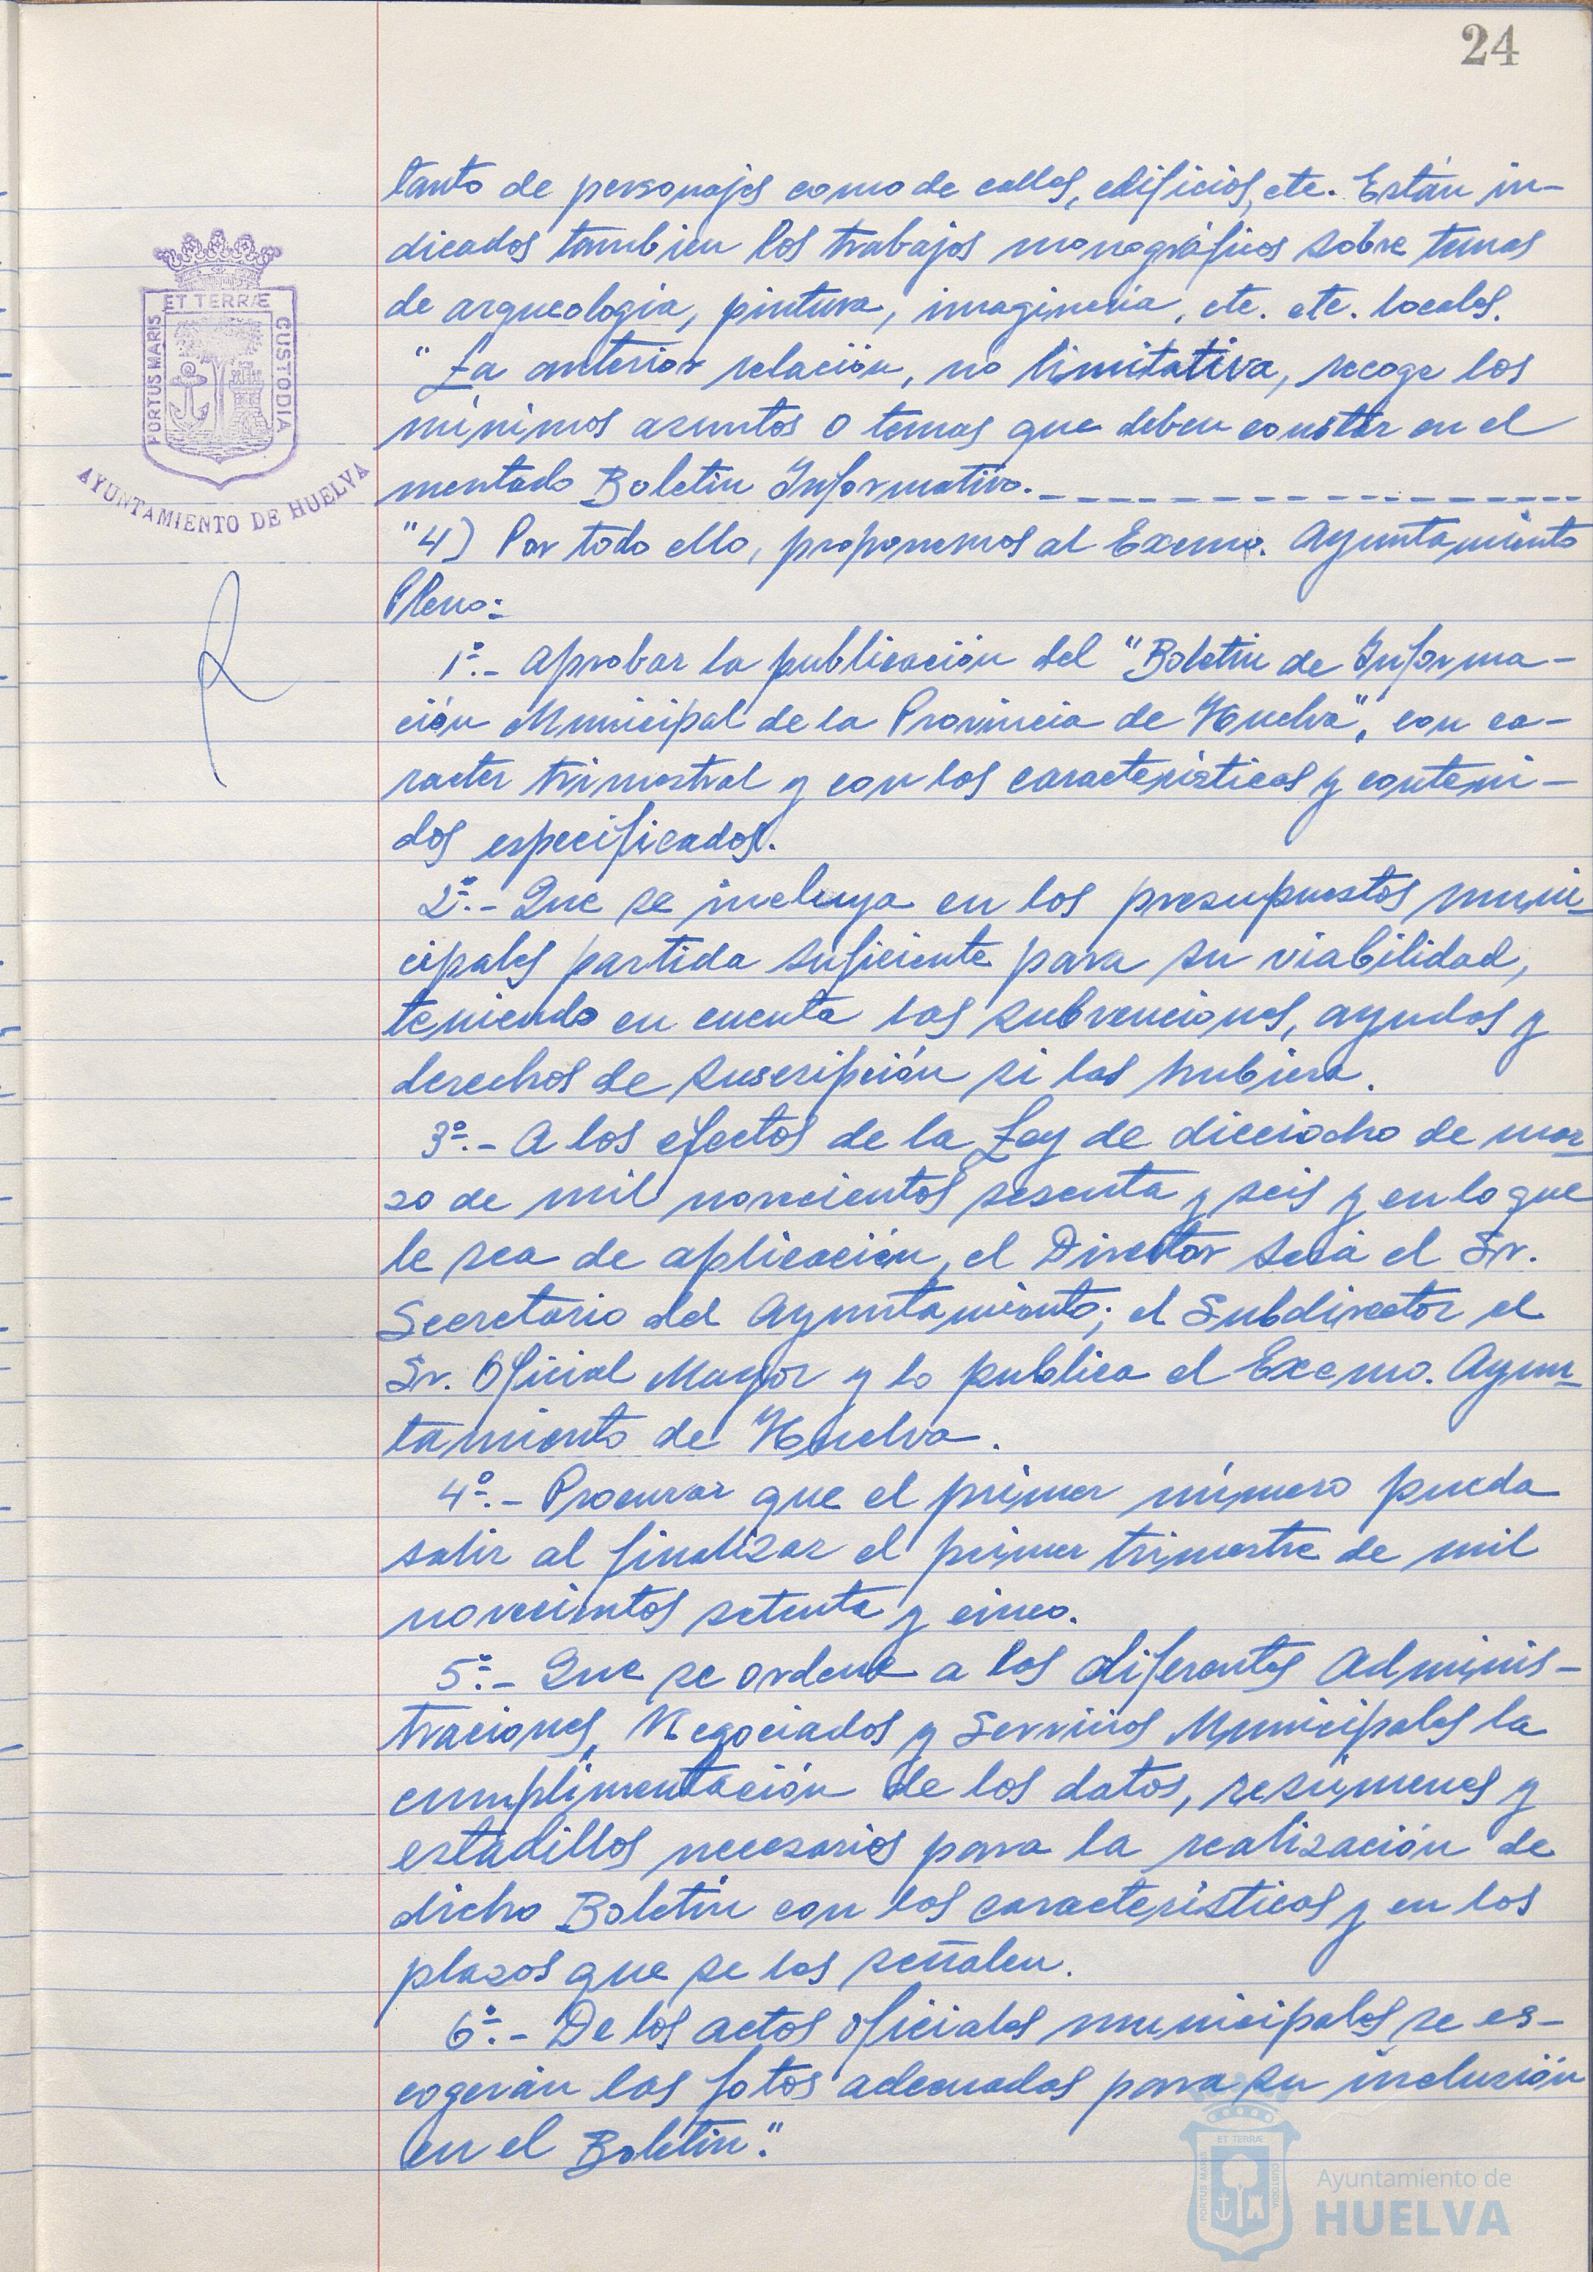 24
tanto de personajes como de calles, edificios, etc. Están in-
dicados tambien los trabajos monográficos sobre temas
de arqueologia, pintura, imagineria, etc. etc. locales.
"La anterior relación, no limitativa, recoge los
mínimos asuntos o temas que deben constar en el
mentado Boletin Informativo.
"4) Por todo ello, proponemos al Excmo. Ayuntamiento
Pleno:
1º.- Aprobar la publicación del "Boletin de Informa-
ción Municipal de la Provincia de Huelva", con ca-
racter trimestral y con las características y conteni-
dos especificados.
2º.- Que se incluya en los presupuestos muni-
cipales partida suficiente para su viabilidad,
teniendo en cuenta las subvenciones, ayudas y
derechos de suscripción si los hubiera.
3º.- A los efectos de la Ley de dieciocho de mar-
zo de mil novecientos sesenta y seis y en lo que
le sea de aplicación, el Director será el Sr.
Secretario del Ayuntamiento; el Subdirector el
Sr. Oficial Mayor y lo publica el Excmo. Ayun-
tamiento de Huelva.
4º.- Procurar que el primer número pueda
salir al finalizar el primer trimestre de mil
novecientos setenta y cinco.
5º.- Que se ordene a las diferentes Adminis-
traciones, Negociados y Servicios Municipales la
cumplimentación de los datos, resúmenes y
estadillos necesarios para la realización de
dicho Boletin con las características y en los
plazos que se les señalen.
6º.- De los actos oficiales municipales se es-
cogerán las fotos adecuadas para su inclusión
en el Boletin."
ET TERRÆ
PORTUS MARIS
CUSTODIA
AYUNTAMIENTO DE HUELVA
ET TERRÆ
PORTUS MARIS
CUSTODIA
Ayuntamiento de
HUELVA